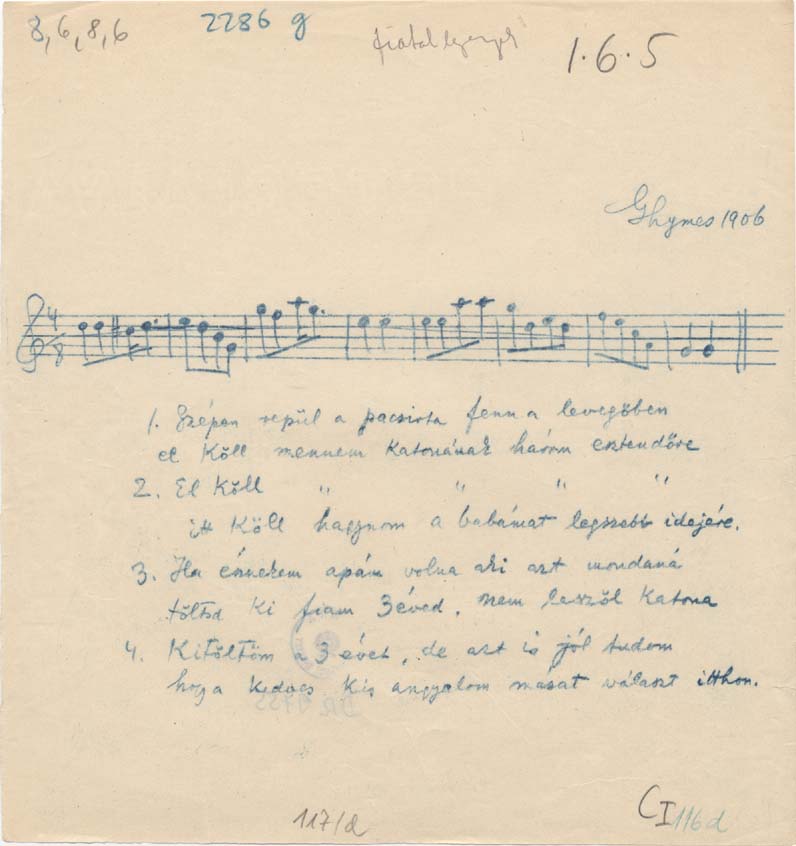 8,6,8,6
2286 g
fiatal legények
1.6.5
Ghymes 1906
4
8
1. Szépen repül a pacsirta fenn a levegőben
el Köll mennem Katonának három esztendőre
2. El Köll " " " "
itt Köll hagynom a babámat legszebb idejére.
3. Ha énnekem apám volna aki azt mondaná
töltsd Ki fiam 3 éved, nem leszöl Katona
4. Kitöltöm a 3 évet, de azt is jól tudom
hogy Kedves Kis angyalom másat választ itthon.
117/d
CI 116d